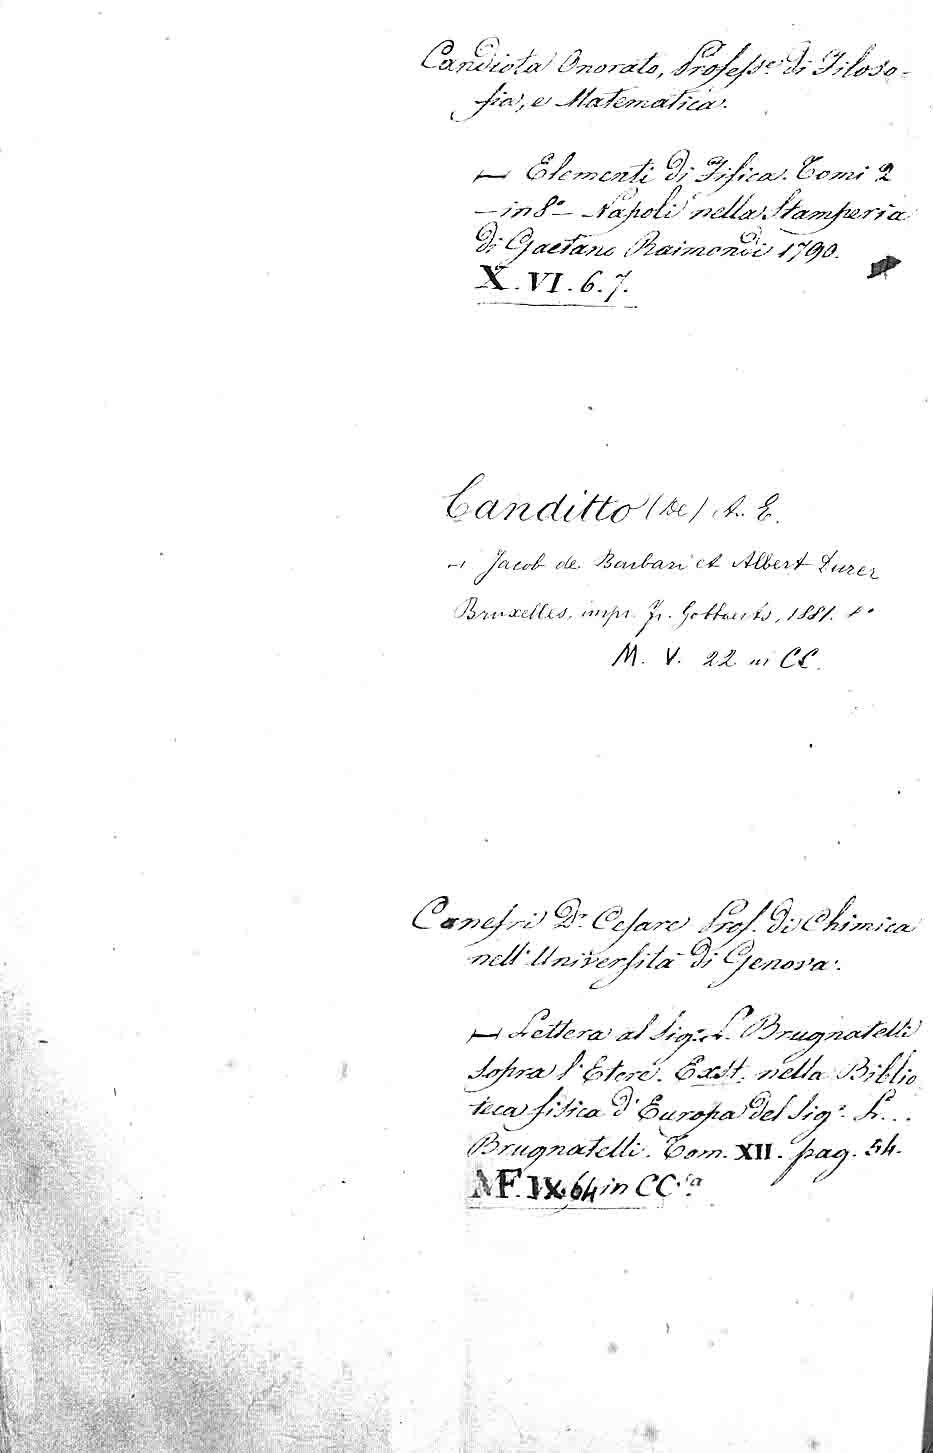 Candiota Onorato, Profess.e di Filoso-
fia, e Matematica.
— Elementi di Fisica. Tomi 2
— in 8.o — Napoli nella Stamperia
di Gaetano Raimondi 1790.
X. VI. 6. 7.
Canditto (De) A. E.
— Jacob de Barbari et Albert Durer
Bruxelles, impr. Gobbaerts, 1881.
M. V. 22 in CC.
Canefri D.r Cesare Prof. di Chimica
nell'Università di Genova.
— Lettera al Sig.r L. Brugnatelli
sopra l'Etere. Exst. nella Biblio
teca fisica d'Europa del Sig.r L...
Brugnatelli. Tom. XII. pag. 54.
MF. IX. 64 in CC.